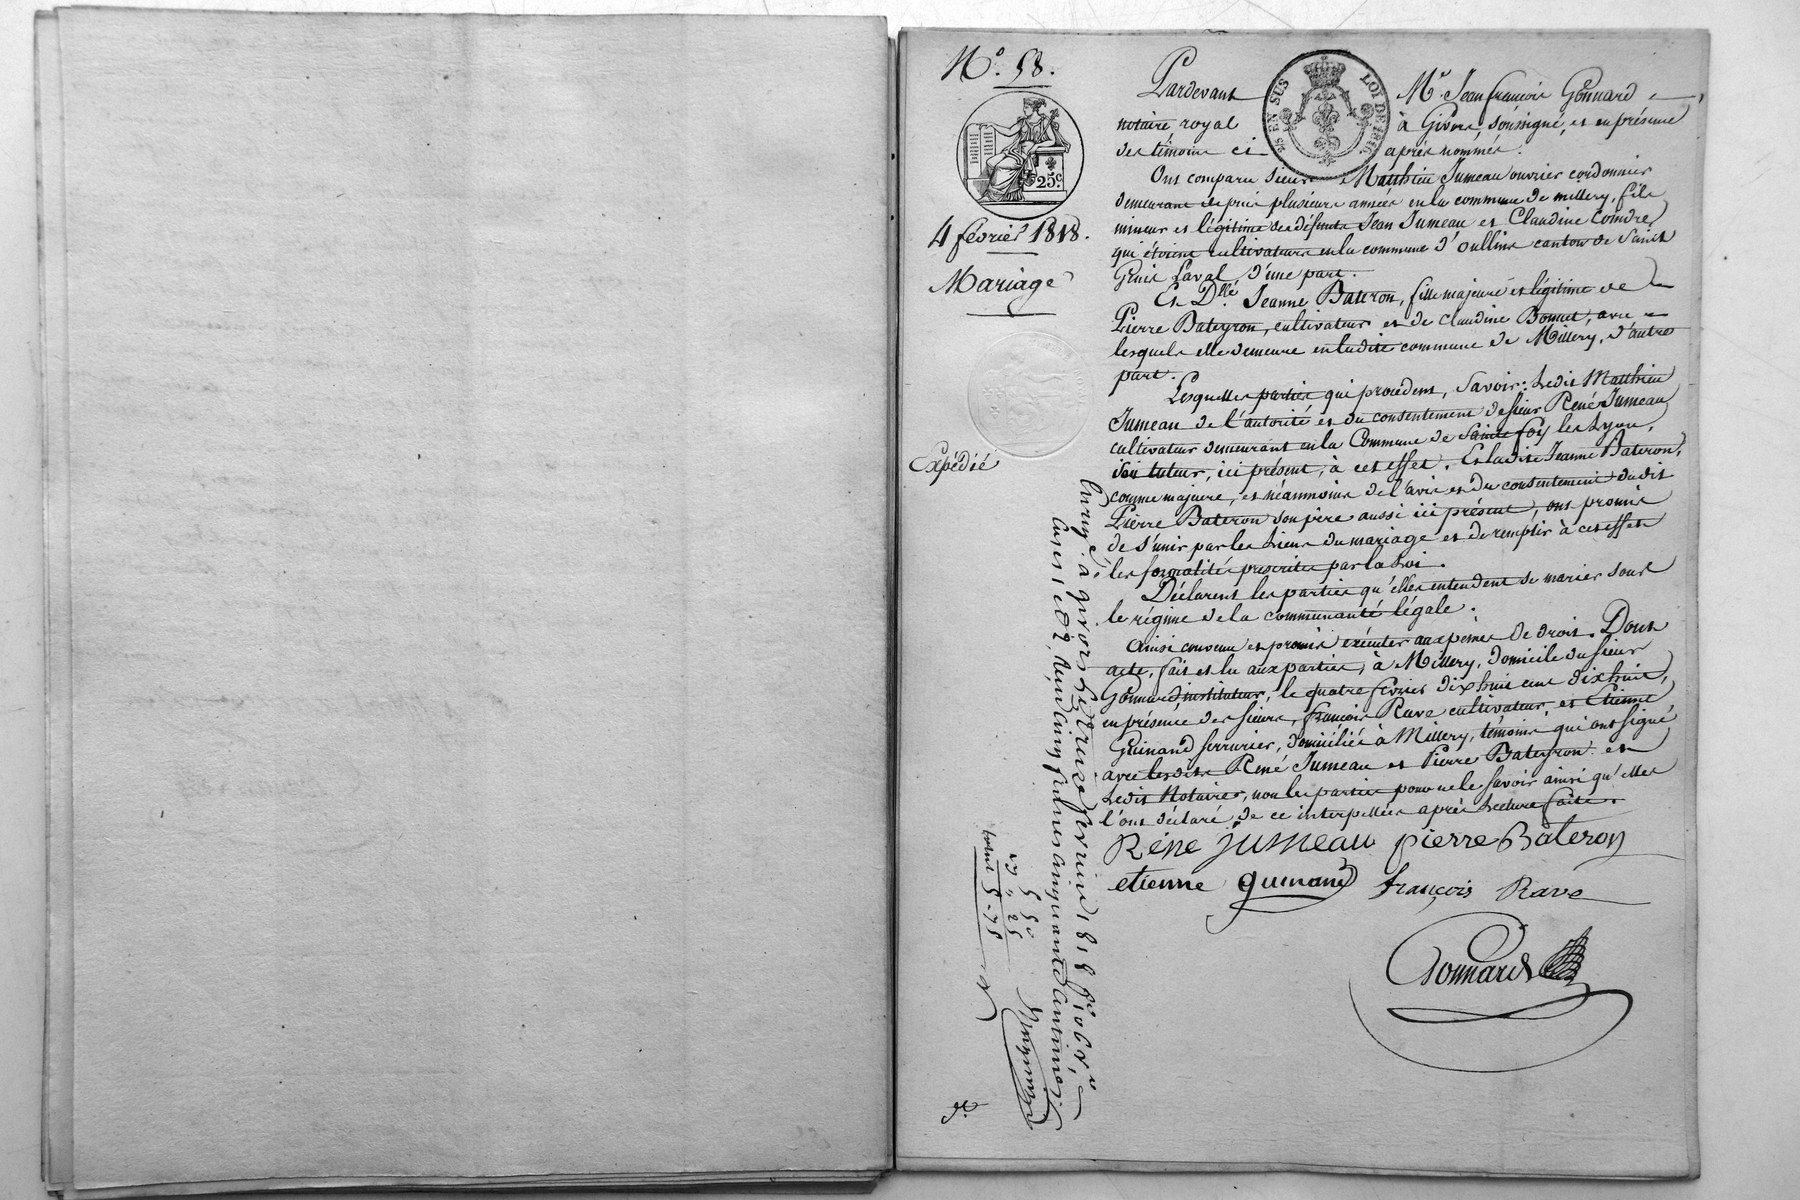 N.° 58.
25.c
4 février 1818.
Mariage
Expédié
25 EN SUS LOI DE 1816.
Pardevant Mr. Jean françois Gonnard
notaire royal à Givors, soussigné, et en présence
des témoins ci après nommés.
Ont comparu Sieur Matthieu Jumeau ouvrier cordonnier
demeurant depuis plusieurs années en la commune de millery, fils
mineur et légitime des défunts Jean Jumeau et Claudine Coindre
qui étoient cultivateurs en la commune d'oullins canton de Saint
Genis Laval d'une part.
Et Dlle Jeanne Bateron, fille majeure et légitime de
Pierre Bateyron, cultivateur et de Claudine Bonnet, avec
lesquels elle demeure en ladite commune de Millery, d'autre
part.
Lesquelles parties qui procèdent, Savoir: Ledit Matthieu
Jumeau de l'autorité et du consentement de Sieur René Jumeau
cultivateur demeurant en la Commune de Sainte foy les Lyon,
son tuteur, ici présent, à cet effet. Et ladite Jeanne Bateron,
comme majeure, et néanmoins de l'avis et du consentement dudit
Pierre Bateron son père aussi ici présent, ont promis
de s'unir par les Liens du mariage et de remplir à cet effet
les formalités prescrites par la Loi.
Déclarent les parties qu'elles entendent se marier sous
le régime de la communauté légale.
Ainsi convenu et promis exécuter aux peines de droit. Dont
acte, fait et lu aux parties, à Millery, domicile du sieur
Gonnard instituteur, le quatre février dix huit cent dix huit,
en présence des sieurs, françois Rave cultivateur, et Etienne
Guinand serrurier, domiciliés à Millery, témoins qui ont signé
avec lesdits René Jumeau et Pierre Bateyron et
Ledit Notaire, non les parties pour ne le savoir ainsi qu'elles
l'ont déclaré de ce interpellées après Lecture faite.
Réne jumeau pierre Bateron
etienne guinand françois Rave
Gonnard
Enreg.é à givors le treize février 1818 f.o
cases 1 et 2, Reçu cinq francs cinquante centimes
5 50
55
5-75